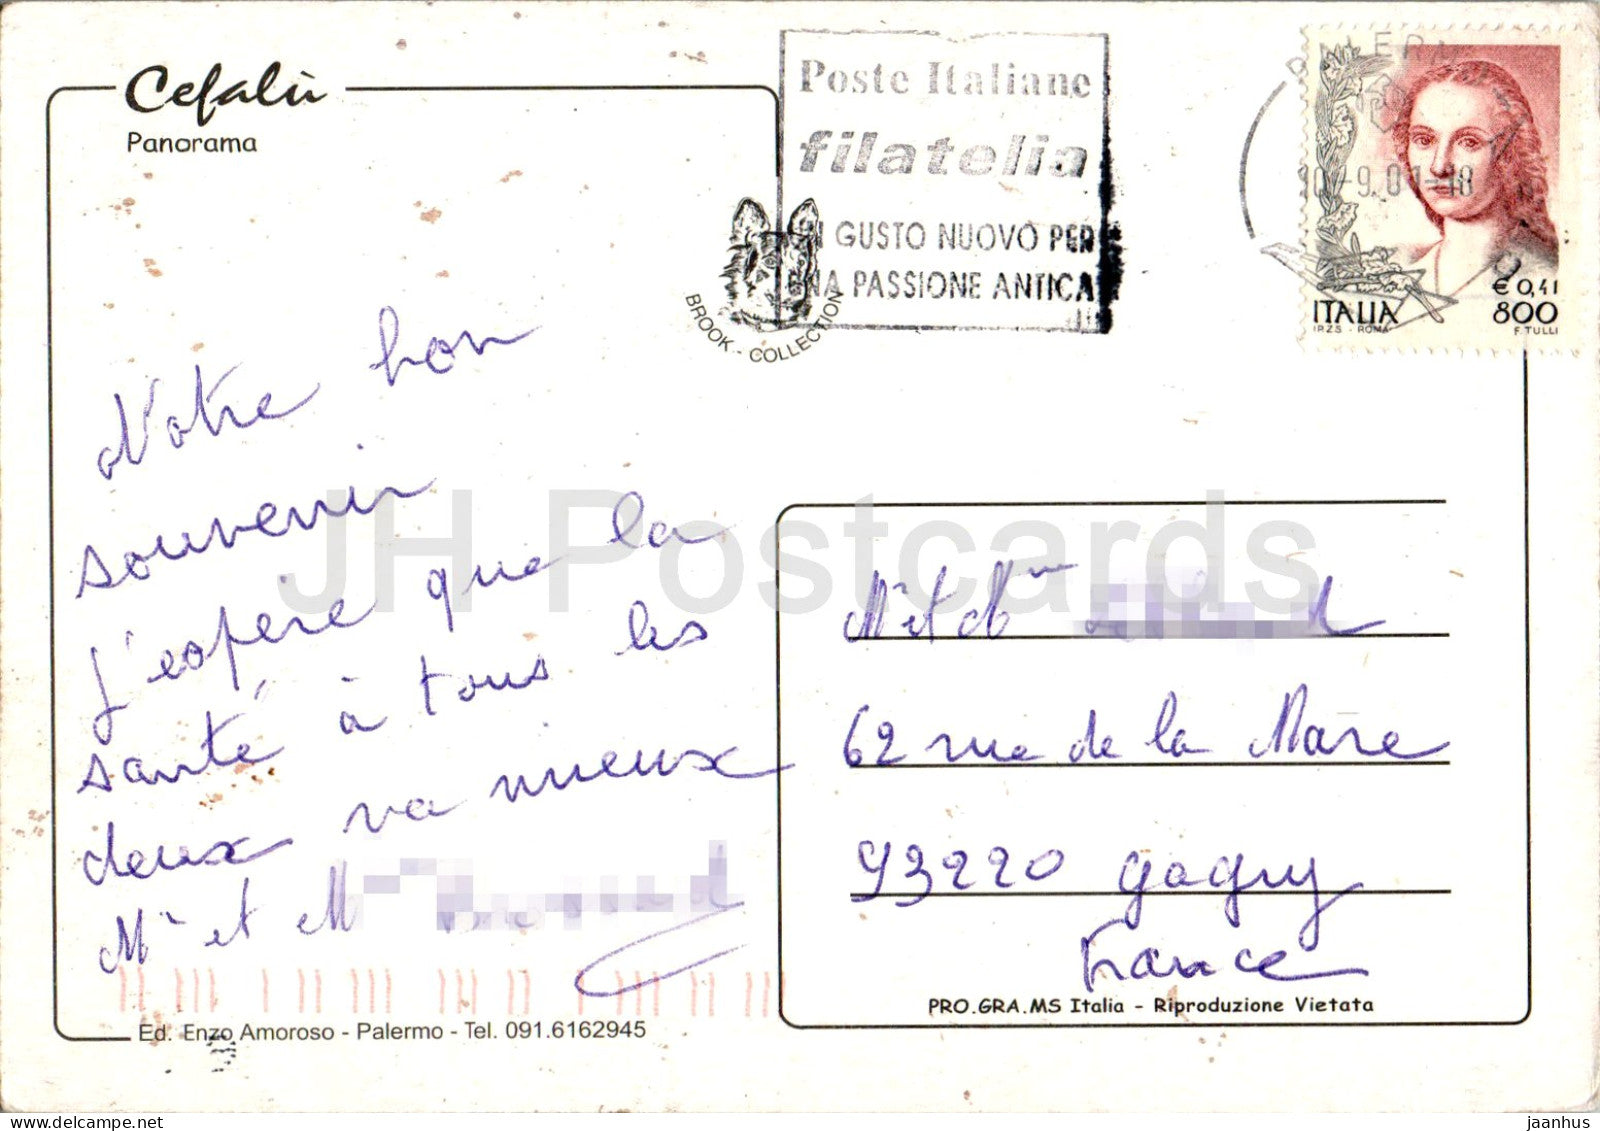 Cefalù
Panorama
Poste Italiane
filatelia
GUSTO NUOVO PER
PASSIONE ANTICA
BROOK - COLLECTION
10-9.01-18
€ 0,41
ITALIA 800
I.P.Z.S - ROMA F. TULLI
Notre bon
souvenir
j'espère que la
santé à tous les
deux va mieux
Mr et M
Mr et Mme
62 rue de la Mare
93220 Gagny
France
PRO.GRA.MS Italia - Riproduzione Vietata
Ed. Enzo Amoroso - Palermo - Tel. 091.6162945
JH Postcards
www.delcampe.net
jaanhus